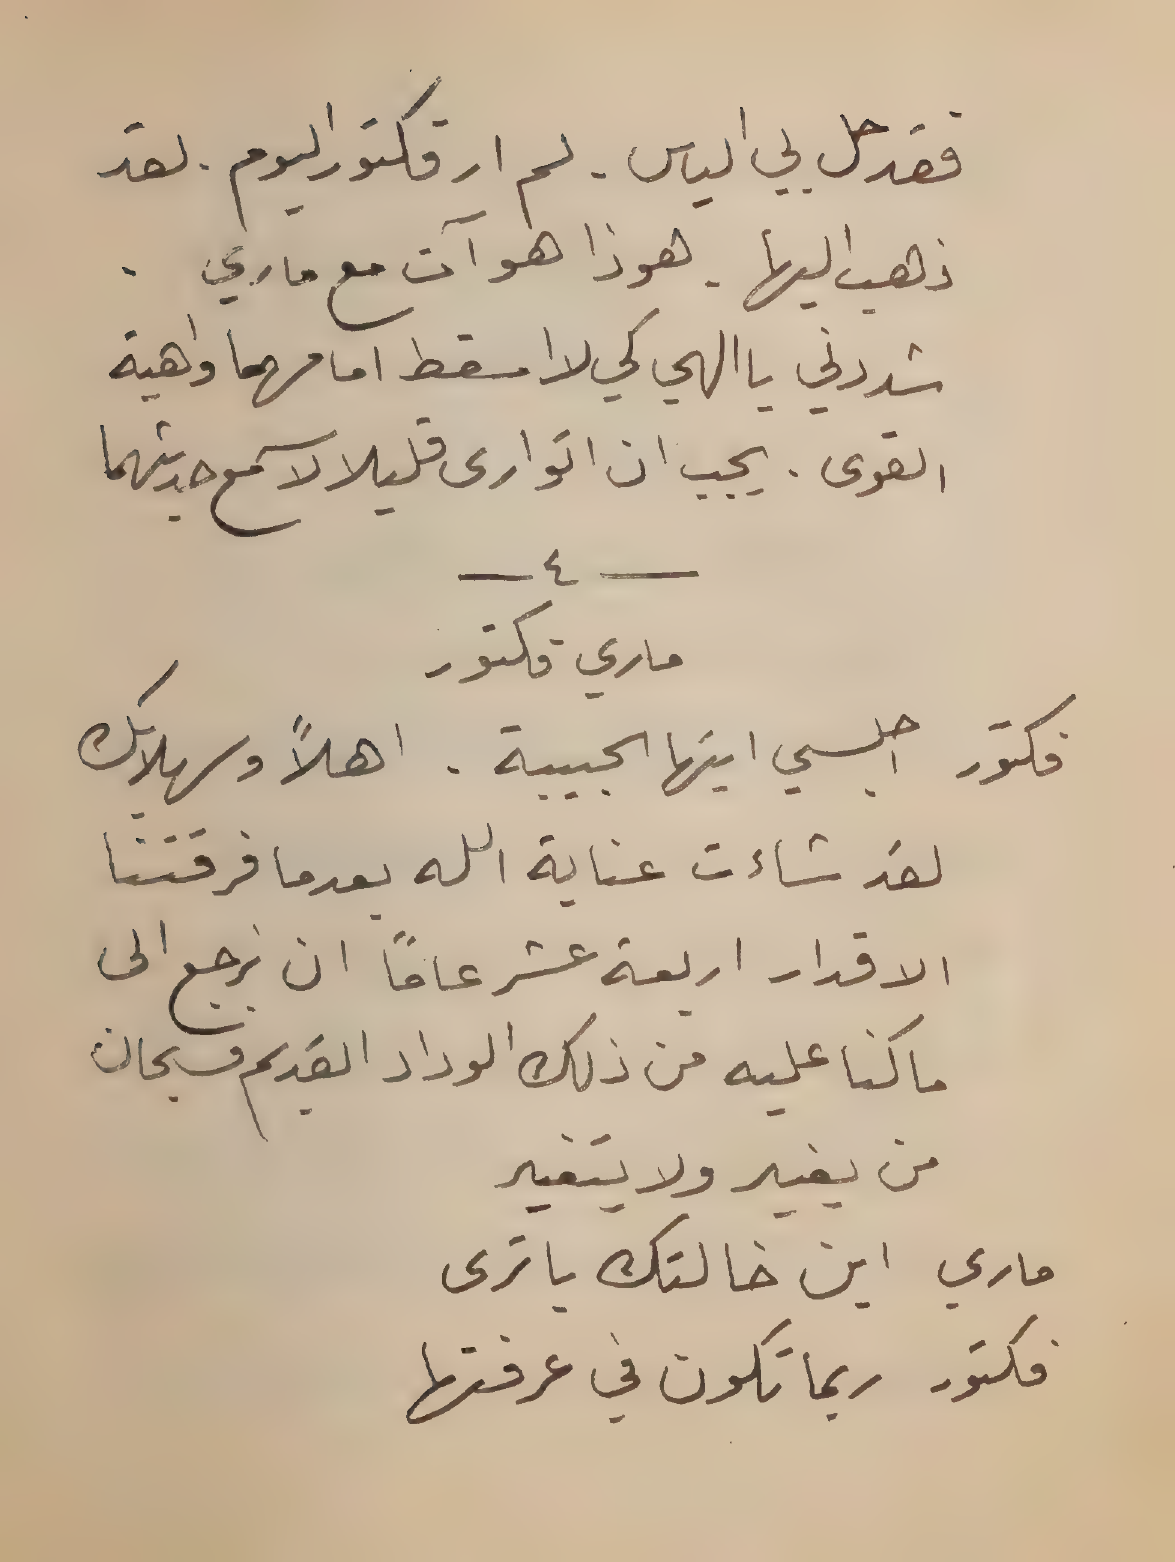 فقد حل بي الياس . لم ار فكتور اليوم . لقد
ذهب اليها . هوذا هو آت مع ماري .
شددني يا الهي كي لا اسقط امامهما واهية
القوى . يجب ان اتوارى قليلا لاسمع حديثهما
— ٤ —
ماري فكتور
فكتور اجلسي ايتها الحبيبة . اهلاً وسهلا بك
لقد شاءت عناية الله بعدما فرقتنا
الاقدار اربعة عشر عامًا ان نرجع الى
ما كنا عليه من ذلك الوداد القديم فسبحان
من يغير ولا يتغير
ماري اين خالتك يا ترى
فكتور ربما تكون في غرفتها